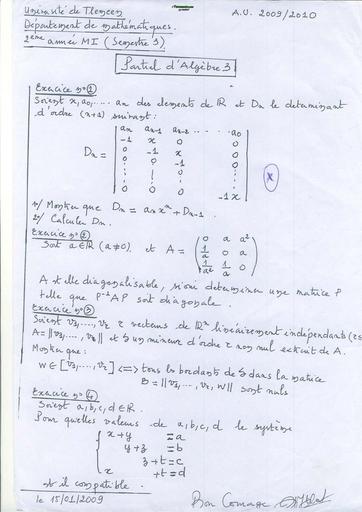 Université de Tlemcen
A.U. 2009/2010
Département de mathématiques.
2ème année MI (Semestre 3)
Partiel d'Algèbre 3
Exercice n° 1
Soient x, a0, ... an des elements de R et Dn le determinant
d'ordre (n+1) suivant :
an an-1 an-2 ... a0
-1 x 0 0
Dn = 0 -1 x 0
0 0 -1 0
0 0 0 -1 x
1/ Montrer que Dn = an x^n + Dn-1.
2/ Calculer Dn.
Exercice n° 2
Soit a ∈ R (a ≠ 0) et A = ( 0 a a² ; 1/a 0 a ; 1/a² 1/a 0 )
A est elle diagonalisable, si oui determiner une matrice P
telle que P^-1 A P soit diagonale.
Exercice n° 3
Soient v1, ..., vr r vecteurs de R^n linéairement indépendants
A = ||v1, ..., vr|| et δ un mineur d'ordre r non nul extrait de A.
Montrer que :
W ∈ [v1, ..., vr] <=> tous les bordants de δ dans la matrice
B = ||v1, ..., vr, W|| sont nuls
Exercice n° 4
Soient a, b, c, d ∈ R.
Pour quelles valeurs de a, b, c, d le système
x + y = a
y + z = b
z + t = c
x + t = d
est il compatible.
le 15/01/2009
Bon Courage